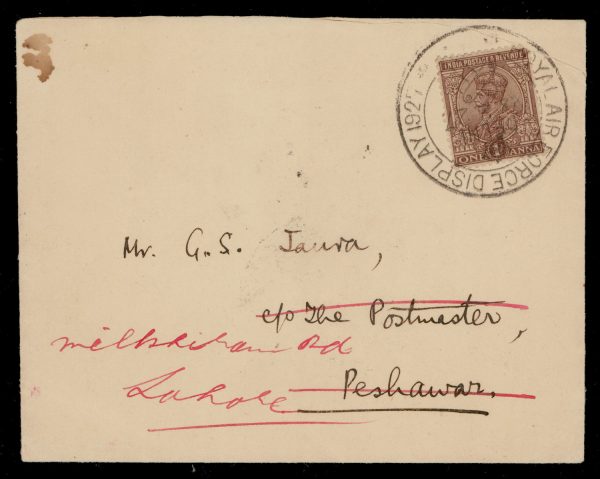 ROYAL AIR FORCE DISPLAY 1927
INDIA POSTAGE & REVENUE
1
ONE ANNA
Mr. G. S. Jaura,
c/o The Postmaster,
Rd
Lahore Peshawar.